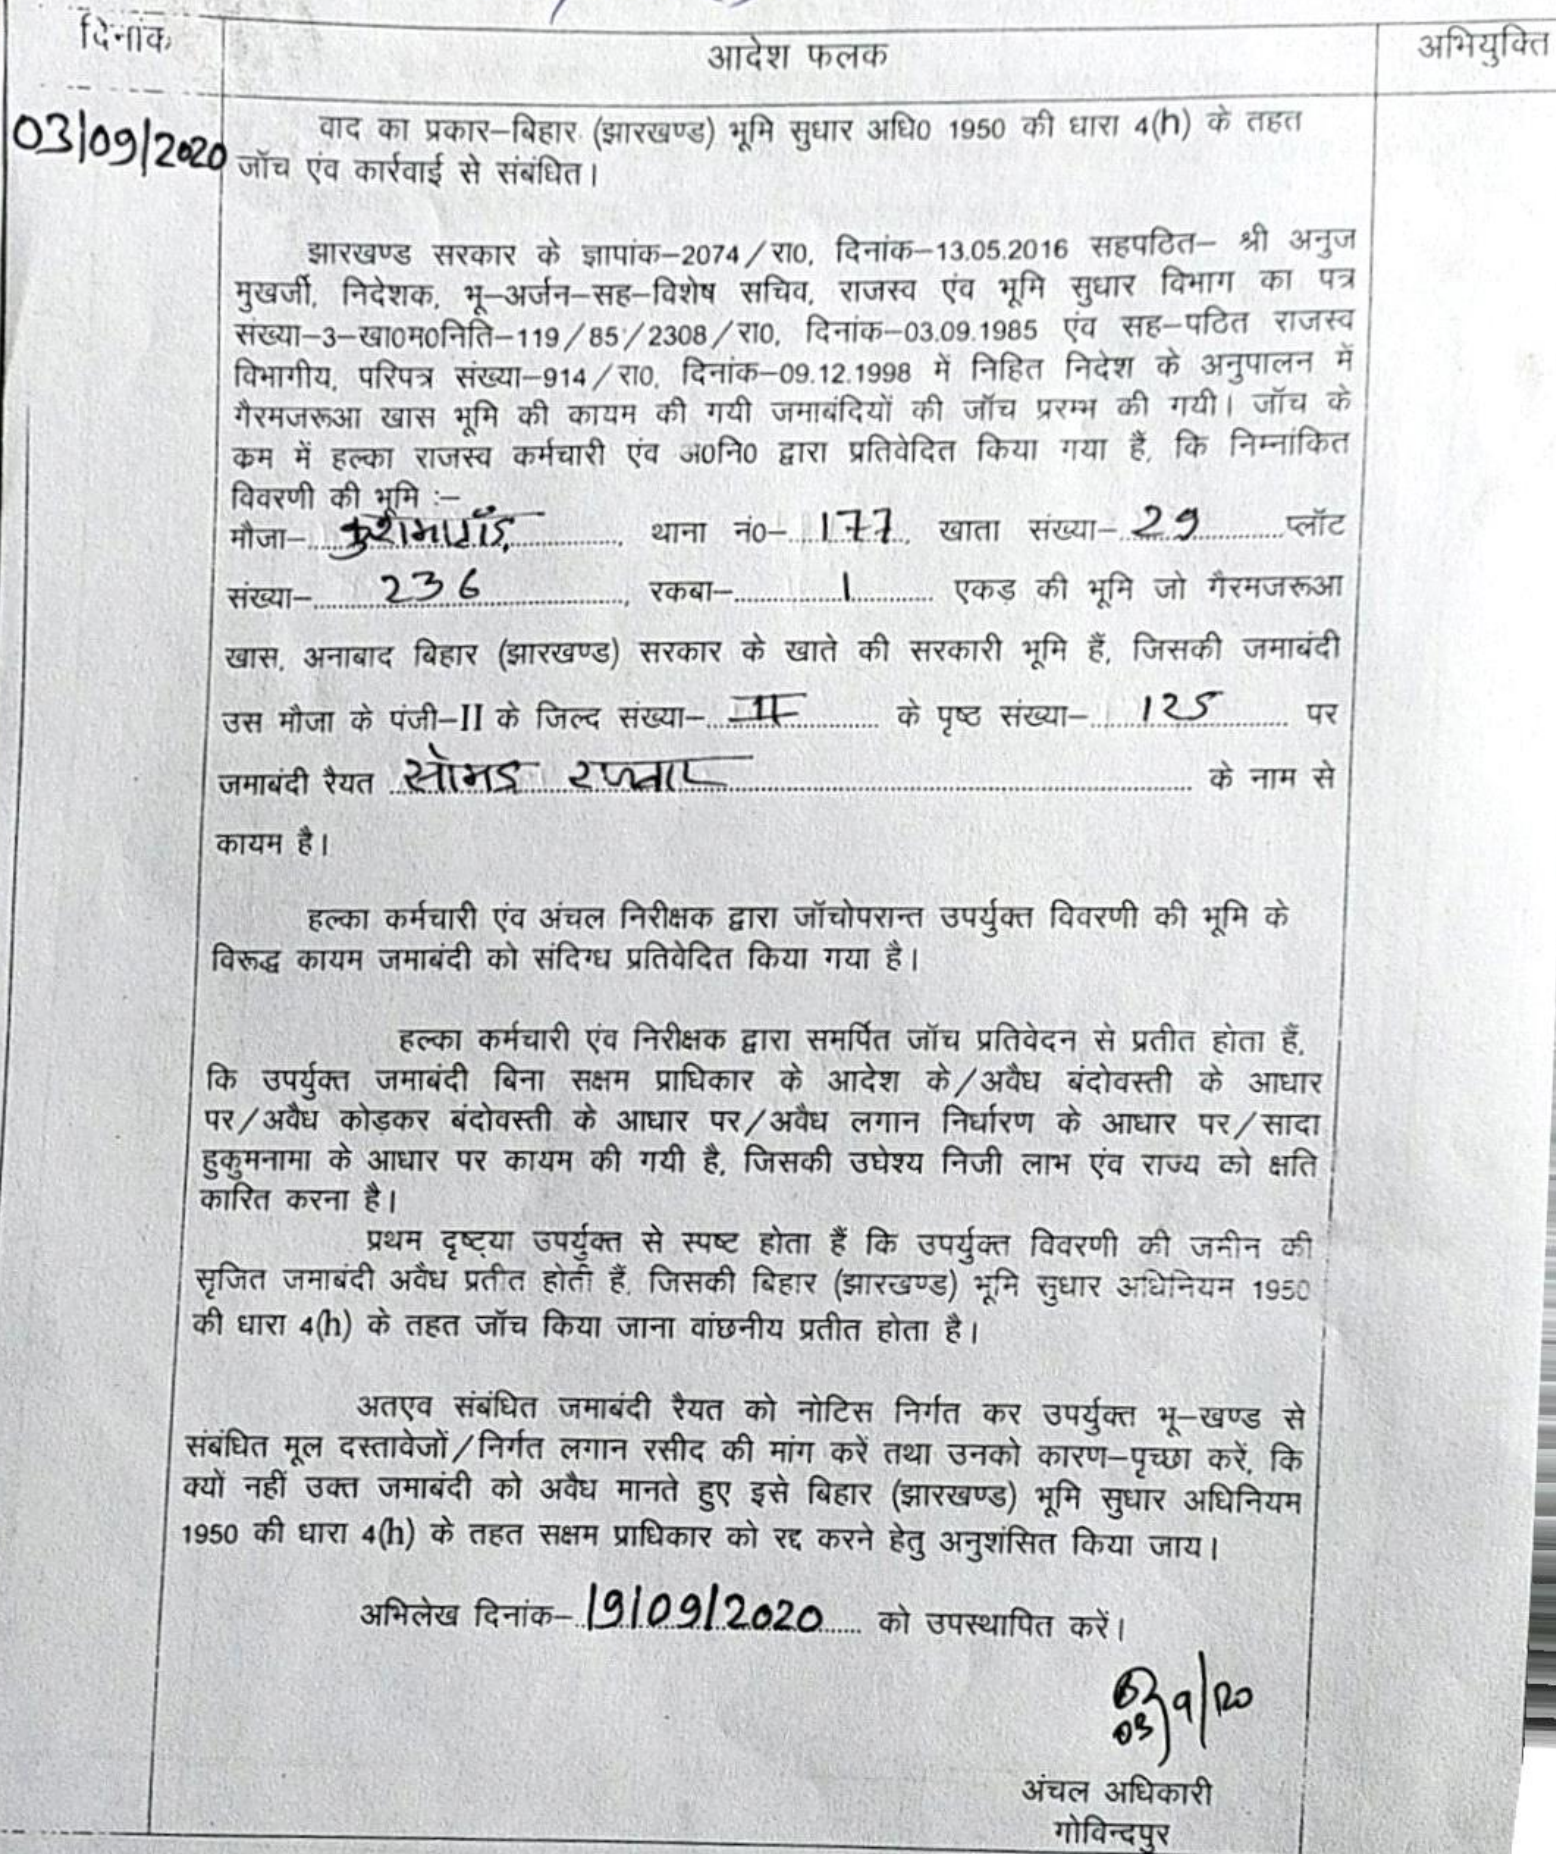 दिनांक
आदेश फलक
अभियुक्ति
03/09/2020
वाद का प्रकार–बिहार (झारखण्ड) भूमि सुधार अधि0 1950 की धारा 4(h) के तहत
जॉच एंव कार्रवाई से संबंधित।
झारखण्ड सरकार के ज्ञापांक–2074/रा0, दिनांक–13.05.2016 सहपठित– श्री अनुज
मुखर्जी, निदेशक, भू–अर्जन–सह–विशेष सचिव, राजस्व एंव भूमि सुधार विभाग का पत्र
संख्या–3–खा0म0निति–119/85/2308/रा0, दिनांक–03.09.1985 एंव सह–पठित राजस्व
विभागीय, परिपत्र संख्या–914/रा0, दिनांक–09.12.1998 में निहित निदेश के अनुपालन में
गैरमजरूआ खास भूमि की कायम की गयी जमाबंदियों की जॉच प्ररम्भ की गयी। जॉच के
कम में हल्का राजस्व कर्मचारी एंव अ0नि0 द्वारा प्रतिवेदित किया गया हैं, कि निम्नांकित
विवरणी की भूमि :–
मौजा– थाना नं0– 177, खाता संख्या– 29 प्लॉट
संख्या– 236, रकबा– 1 एकड़ की भूमि जो गैरमजरूआ
खास, अनाबाद बिहार (झारखण्ड) सरकार के खाते की सरकारी भूमि हैं, जिसकी जमाबंदी
उस मौजा के पंजी–II के जिल्द संख्या– II के पृष्ठ संख्या– 125 पर
जमाबंदी रैयत के नाम से
कायम है।
हल्का कर्मचारी एंव अंचल निरीक्षक द्वारा जॉचोपरान्त उपर्युक्त विवरणी की भूमि के
विरूद्ध कायम जमाबंदी को संदिग्ध प्रतिवेदित किया गया है।
हल्का कर्मचारी एंव निरीक्षक द्वारा समर्पित जॉच प्रतिवेदन से प्रतीत होता हैं,
कि उपर्युक्त जमाबंदी बिना सक्षम प्राधिकार के आदेश के/अवैध बंदोवस्ती के आधार
पर/अवैध कोड़कर बंदोवस्ती के आधार पर/अवैध लगान निर्धारण के आधार पर/सादा
हुकुमनामा के आधार पर कायम की गयी है, जिसकी उघेश्य निजी लाभ एंव राज्य को क्षति
कारित करना है।
प्रथम दृष्टया उपर्युक्त से स्पष्ट होता हैं कि उपर्युक्त विवरणी की जमीन की
सृजित जमाबंदी अवैध प्रतीत होती हैं, जिसकी बिहार (झारखण्ड) भूमि सुधार अधिनियम 1950
की धारा 4(h) के तहत जॉच किया जाना वांछनीय प्रतीत होता है।
अतएव संबंधित जमाबंदी रैयत को नोटिस निर्गत कर उपर्युक्त भू–खण्ड से
संबंधित मूल दस्तावेजों/निर्गत लगान रसीद की मांग करें तथा उनको कारण–पृच्छा करें, कि
क्यों नहीं उक्त जमाबंदी को अवैध मानते हुए इसे बिहार (झारखण्ड) भूमि सुधार अधिनियम
1950 की धारा 4(h) के तहत सक्षम प्राधिकार को रद्द करने हेतु अनुशंसित किया जाय।
अभिलेख दिनांक– 19/09/2020 को उपस्थापित करें।
अंचल अधिकारी
गोविन्दपुर